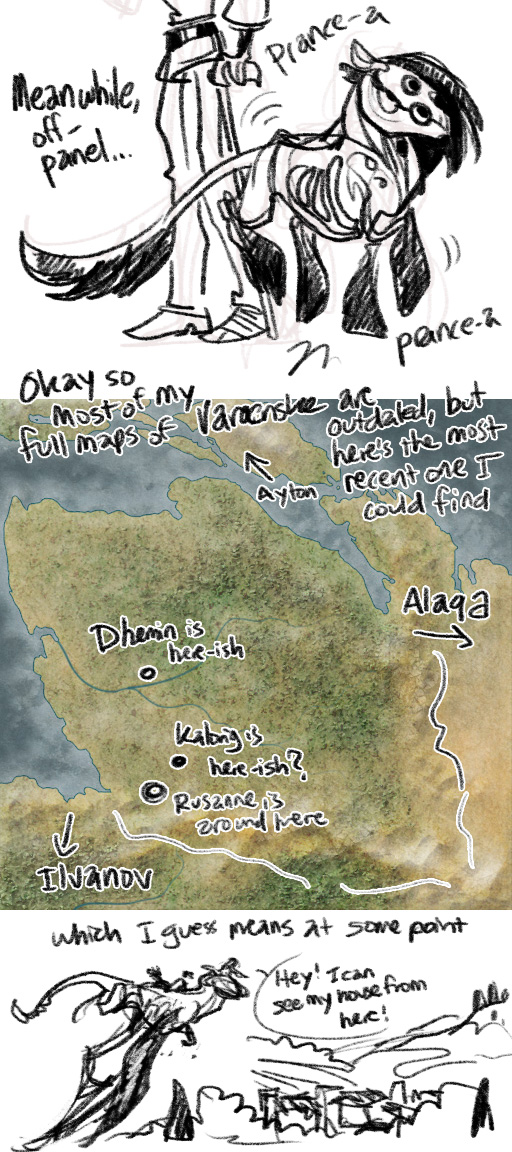 Meanwhile,
off-
panel...
prance-a
prance-a
Okay so
most of my
full maps of
are
outdated, but
here's the most
recent one I
could find
Ayton
Alaqa
Dhemin is
here-ish
Kalorig is
here-ish?
Rusanne is
around here
Ilvanov
which I guess means at some point
Hey! I can
see my house from
here!